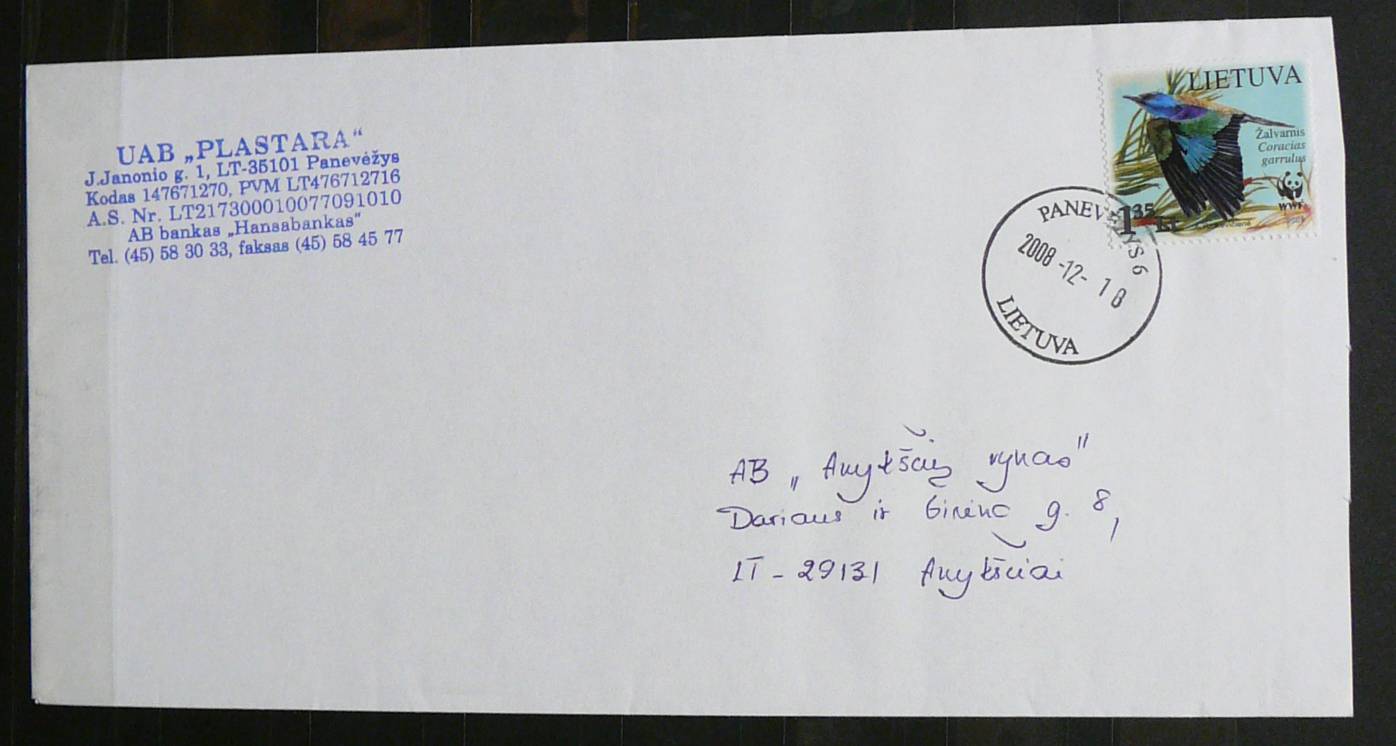 UAB „PLASTARA“
J.Janonio g. 1, LT-35101 Panevėžys
Kodas 147671270, PVM LT476712716
A.S. Nr. LT217300010077091010
AB bankas „Hansabankas“
Tel. (45) 58 30 33, faksas (45) 58 45 77
LIETUVA
Žalvarnis
Coracias
garrulus
WWF
1 35 Lt
PANEVĖŽYS 6
2008-12-18
LIETUVA
AB „Anykščių vynas”
Dariaus ir Girėno g. 8,
LT-29131 Anykščiai